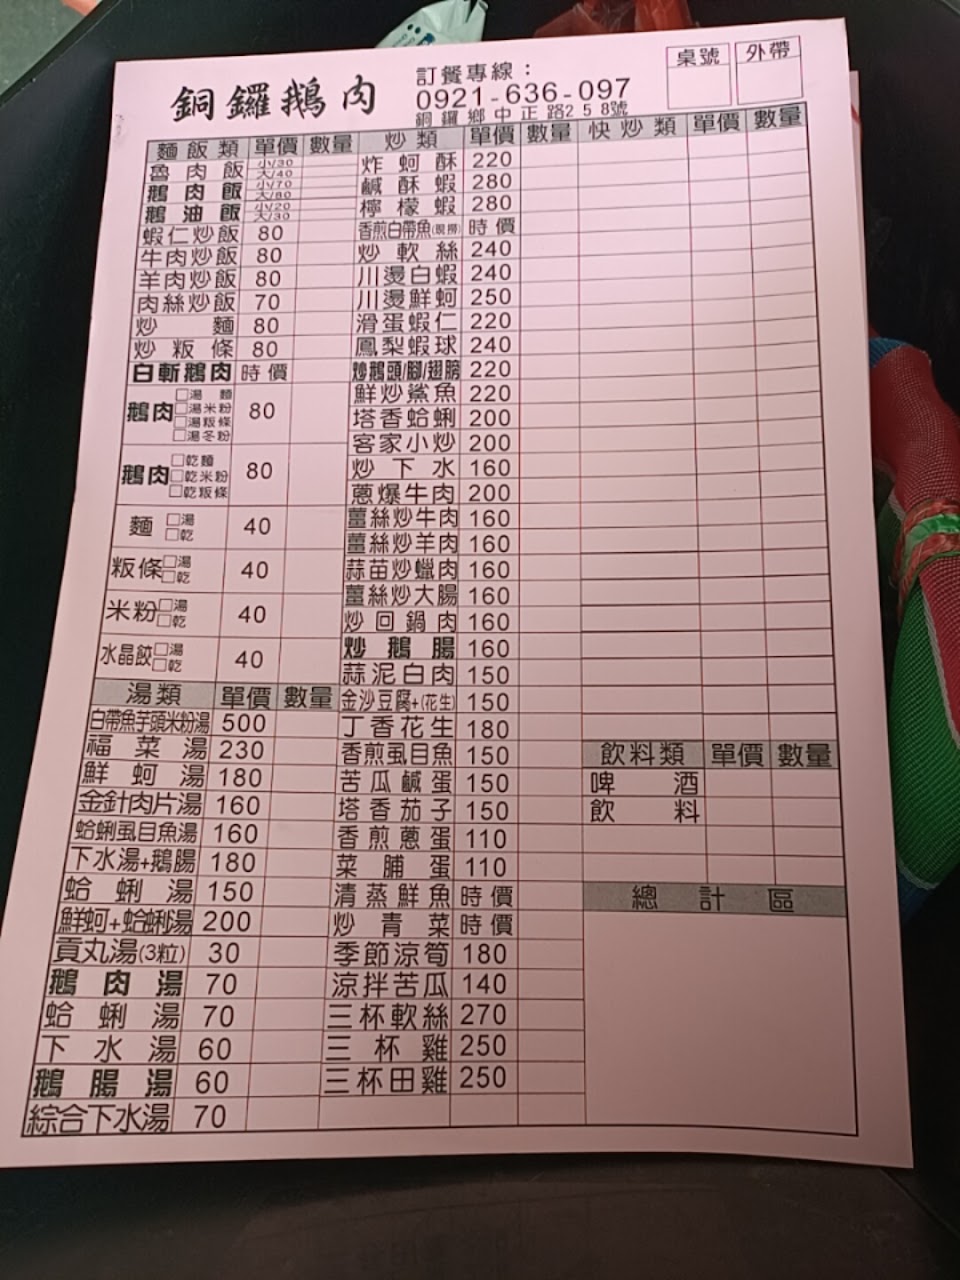 銅鑼鵝肉
訂餐專線：
0921-636-097
銅鑼鄉中正路258號
桌號 外帶
麵飯類 單價 數量
魯肉飯 小/30 大/40
鵝肉飯 小/70 大/80
鵝油飯 小/20 大/30
蝦仁炒飯 80
牛肉炒飯 80
羊肉炒飯 80
肉絲炒飯 70
炒麵 80
炒粄條 80
白斬鵝肉 時價
鵝肉 □湯麵 □湯米粉 □湯粄條 □湯冬粉 80
鵝肉 □乾麵 □乾米粉 □乾粄條 80
麵 □湯 □乾 40
粄條 □湯 □乾 40
米粉 □湯 □乾 40
水晶餃 □湯 □乾 40
湯類 單價 數量
白帶魚芋頭米粉湯 500
福菜湯 230
鮮蚵湯 180
金針肉片湯 160
蛤蜊虱目魚湯 160
下水湯+鵝腸 180
蛤蜊湯 150
鮮蚵+蛤蜊湯 200
貢丸湯(3粒) 30
鵝肉湯 70
蛤蜊湯 70
下水湯 60
鵝腸湯 60
綜合下水湯 70
炒類 單價 數量
炸蚵酥 220
鹹酥蝦 280
檸檬蝦 280
香煎白帶魚(現撈) 時價
炒軟絲 240
川燙白蝦 240
川燙鮮蚵 250
滑蛋蝦仁 220
鳳梨蝦球 240
炒鵝頭/腳/翅膀 220
鮮炒鯊魚 220
塔香蛤蜊 200
客家小炒 200
炒下水 160
蔥爆牛肉 200
薑絲炒牛肉 160
薑絲炒羊肉 160
蒜苗炒臘肉 160
薑絲炒大腸 160
炒回鍋肉 160
炒鵝腸 160
蒜泥白肉 150
金沙豆腐+(花生) 150
丁香花生 180
香煎虱目魚 150
苦瓜鹹蛋 150
塔香茄子 150
香煎蔥蛋 110
菜脯蛋 110
清蒸鮮魚 時價
炒青菜 時價
季節涼筍 180
涼拌苦瓜 140
三杯軟絲 270
三杯雞 250
三杯田雞 250
快炒類 單價 數量
飲料類 單價 數量
啤酒
飲料
總計區